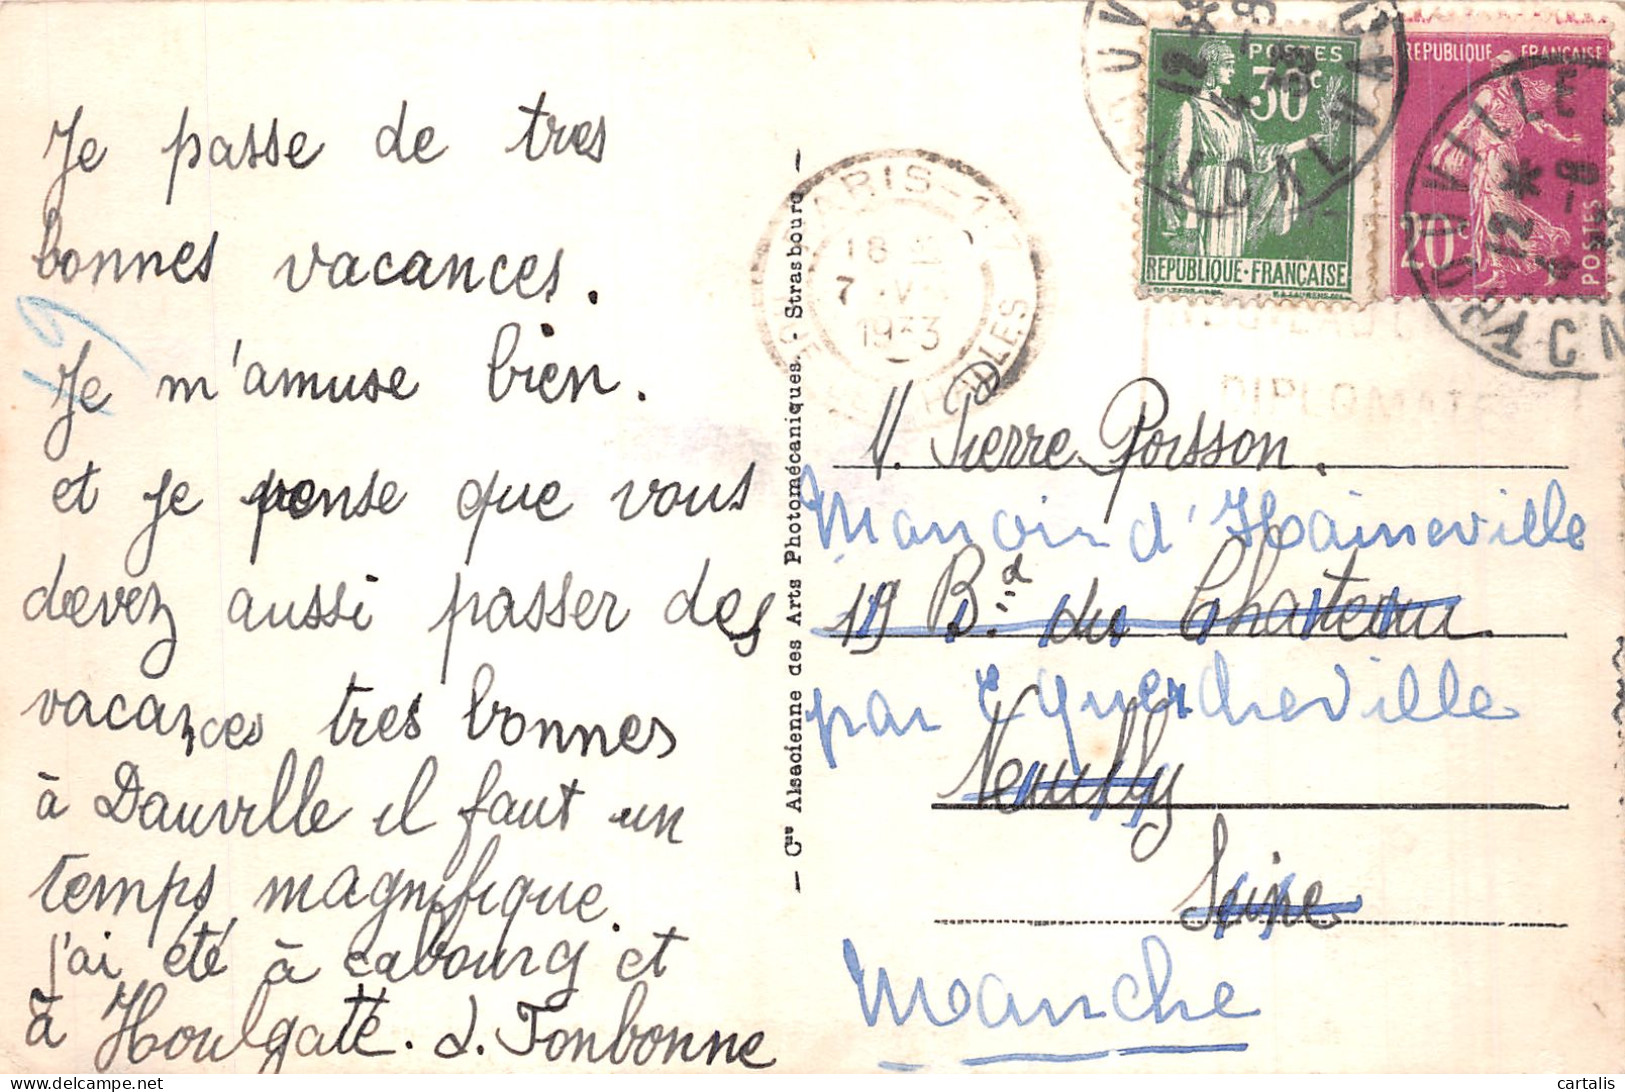 Je passe de tres
bonnes vacances.
Je m'amuse bien.
et je pense que vous
devez aussi passer des
vacances tres bonnes
à Dauville il faut un
temps magnifique.
j'ai été à cabourg et
à Houlgate. d. Tonbonne
19
— Cie Alsacienne des Arts Photomécaniques. - Strasbourg —
PARIS-17
18
7
1933
POSTES
30c
REPUBLIQUE·FRANÇAISE
REPUBLIQUE FRANÇAISE
20c
POSTES
12 *
4 -8
DIPLOMAT
M. Pierre Poisson.
Manoir d'Haineville
19 Bd du Chateau
par Equerdreville
Neuilly
Seine
Manche
cartalis